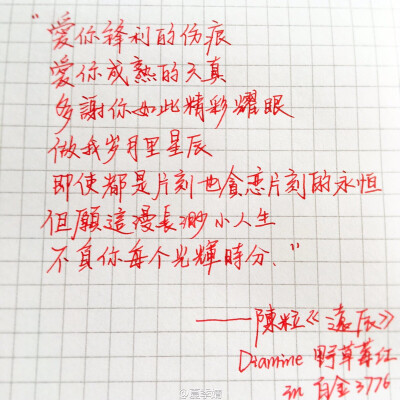 "愛你鋒利的伤痕
愛你成熟的天真
多謝你如此精彩耀眼
做我岁月里星辰
即使都是片刻也貪恋片刻的永恒
但願這漫長渺小人生
不負你每个光輝時分."
——陳粒《遠辰》
Diamine 野草莓红
in 白金3776